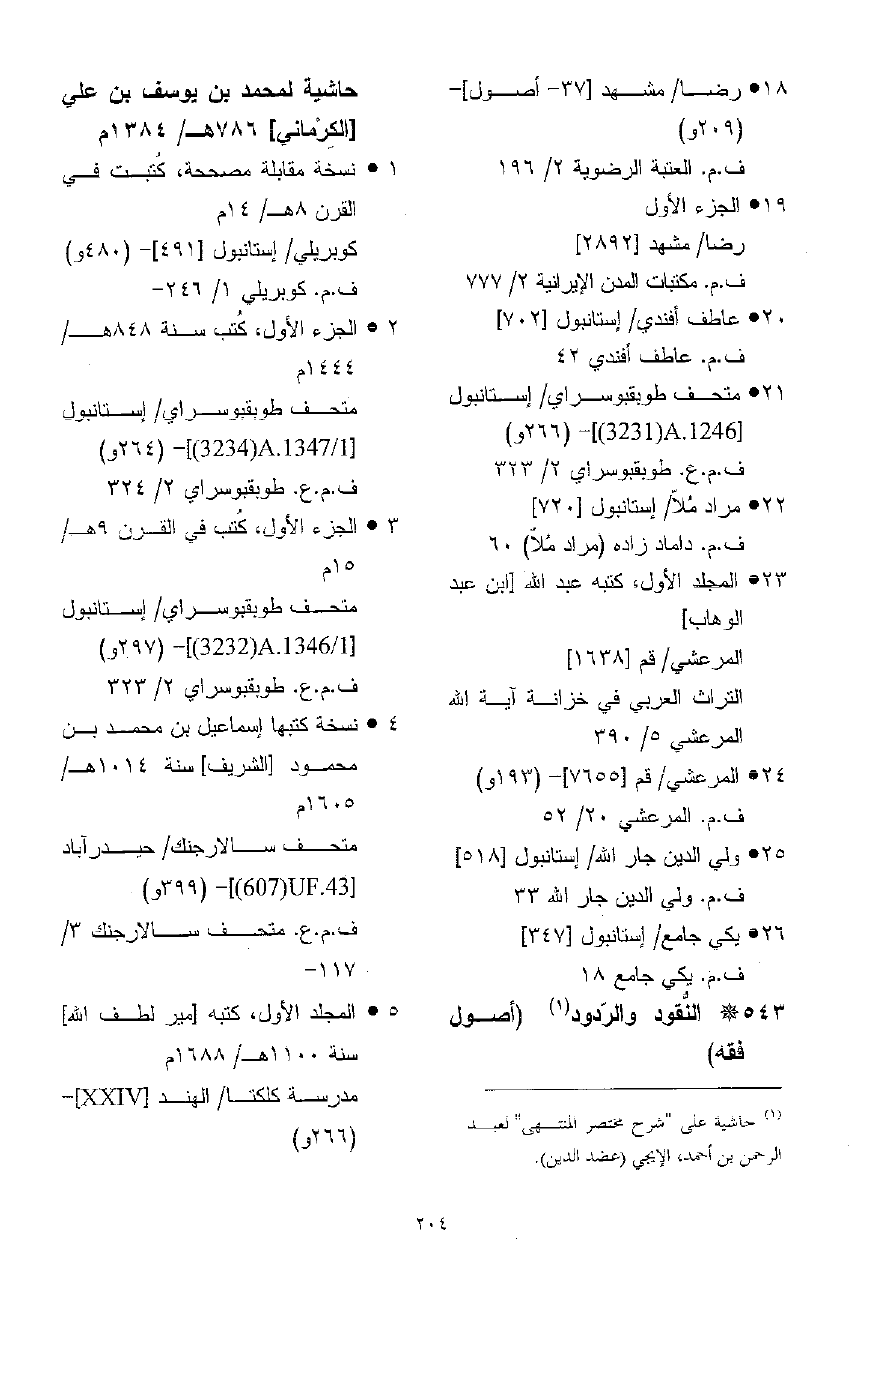 ١٨● رضا/ مشهد [٣٧- أصول]-
(٢٠٩و)
ف.م. العتبة الرضوية ٢/ ١٩٦
١٩● الجزء الأول
رضا/ مشهد [٢٨٩٢]
ف.م. مكتبات المدن الإيرانية ٢/ ٧٧٧
٢٠● عاطف أفندي/ إستانبول [٧٠٢]
ف.م. عاطف أفندي ٤٢
٢١● متحف طوبقبوسراي/ إستانبول
[A.1246(3231)]- (٢٦٦و)
ف.م.ع. طوبقبوسراي ٢/ ٣٢٣
٢٢● مراد مُلاّ/ إستانبول [٧٢٠]
ف.م. داماد زاده (مراد مُلاّ) ٦٠
٢٣● المجلد الأول، كتبه عبد الله [ابن عبد
الوهاب]
المرعشي/ قم [١٦٣٨]
التراث العربي في خزانة آية الله
المرعشي ٥/ ٣٩٠
٢٤● المرعشي/ قم [٧٦٥٥]- (١٩٣و)
ف.م. المرعشي ٢٠/ ٥٢
٢٥● ولي الدين جار الله/ إستانبول [٥١٨]
ف.م. ولي الدين جار الله ٣٣
٢٦● يكي جامع/ إستانبول [٣٤٧]
ف.م. يكي جامع ١٨
٥٤٣※ النُّقود والرّدود(١) (أصول
فقه)
(١) حاشية على "شرح مختصر المنتهى" لعبد
الرحمن بن أحمد، الإيجي (عضد الدين).
حاشية لمحمد بن يوسف بن علي
[الكِرْماني] ٧٨٦هـ/ ١٣٨٤م
١ ● نسخة مقابلة مصححة، كُتبت في
القرن ٨هـ/ ١٤م
كوبريلي/ إستانبول [٤٩١]- (٤٨٠و)
ف.م. كوبريلي ١/ ٢٤٦-
٢ ● الجزء الأول، كُتب سنة ٨٤٨هـ/
١٤٤٤م
متحف طوبقبوسراي/ إستانبول
[A.1347/1(3234)]- (٢٦٤و)
ف.م.ع. طوبقبوسراي ٢/ ٣٢٤
٣ ● الجزء الأول، كُتب في القرن ٩هـ/
١٥م
متحف طوبقبوسراي/ إستانبول
[A.1346/1(3232)]- (٢٩٧و)
ف.م.ع. طوبقبوسراي ٢/ ٣٢٣
٤ ● نسخة كتبها إسماعيل بن محمد بن
محمود [الشريف] سنة ١٠١٤هـ/
١٦٠٥م
متحف سالارجنك/ حيدرآباد
[UF.43(607)]- (٣٩٩و)
ف.م.ع. متحف سالارجنك ٣/
١١٧-
٥ ● المجلد الأول، كتبه [مير لطف الله]
سنة ١١٠٠هـ/ ١٦٨٨م
مدرسة كلكتا/ الهند [XXIV]-
(٢٦٦و)
٢٠٤